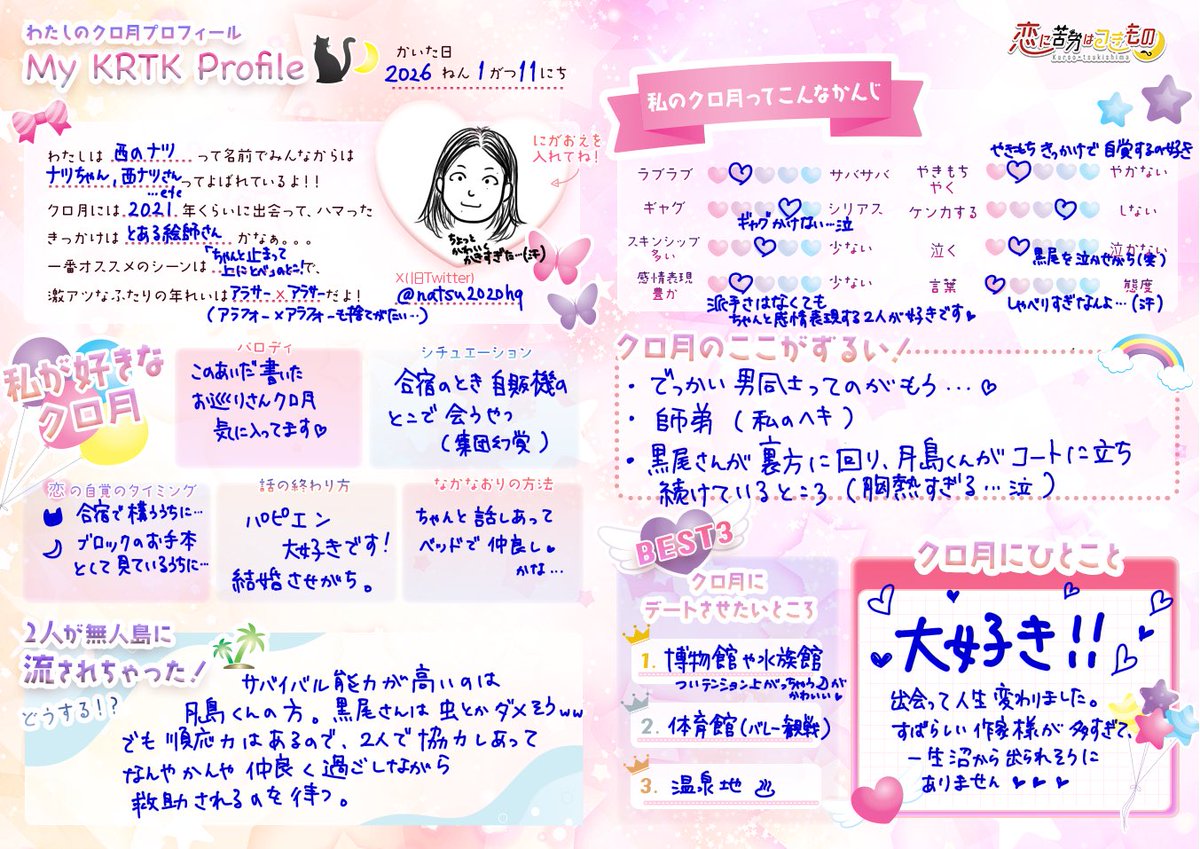 わたしのクロ月プロフィール
My KRTK Profile
かいた日
2026 ねん 1 がつ 11 にち
恋に苦労はつきもの
Kuroo×tsukishima
にがおえを
入れてね!
わたしは 西のナツ って名前でみんなからは
ナツちゃん、西ナツさん …etc ってよばれているよ!!
クロ月には 2021 年くらいに出会って、ハマった
きっかけは とある絵師さん かなぁ。。。
一番オススメのシーンは 「ちゃんと止まって
上にとべ」のとこ! で、
激アツなふたりの年れいは アラサー × アラサー だよ!
(アラフォー×アラフォーも捨てがたい…)
ちょっと
かわいく
かきすぎた…(汗)
X(旧Twitter)
@natsu2020hq
私のクロ月ってこんなかんじ
ラブラブ サバサバ
ギャグ シリアス
ギャグかけない…泣
スキンシップ
多い 少ない
感情表現
豊か 少ない
派手さはなくても
ちゃんと感情表現する2人が好きです
やきもちきっかけで自覚するの好き
やきもち
やく やかない
ケンカする しない
泣く 泣かない
黒尾を泣かせがち(笑)
言葉 態度
しゃべりすぎなんよ…(汗)
私が好きな
クロ月
パロディ
このあいだ書いた
お巡りさんクロ月
気に入ってます♡
シチュエーション
合宿のとき自販機の
とこで会うやつ
(集団幻覚)
恋の自覚のタイミング
合宿で構ううちに…
ブロックのお手本
として見ているうちに…
話の終わり方
ハピエン
大好きです!
結婚させがち。
なかなおりの方法
ちゃんと話しあって
ベッドで仲良し
かな…
クロ月のここがずるい!
・でっかい男同士ってのがもう…♡
・師弟(私のヘキ)
・黒尾さんが裏方に回り、月島くんがコートに立ち
続けているところ(胸熱すぎる…泣)
2人が無人島に
流されちゃった!
どうする!?
サバイバル能力が高いのは
月島くんの方。黒尾さんは虫とかダメそうww
でも順応力はあるので、2人で協力しあって
なんやかんや仲良く過ごしながら
救助されるのを待つ。
BEST3
クロ月に
デートさせたいところ
1. 博物館や水族館
ついテンション上がっちゃう☽が
かわいい♥
2. 体育館(バレー観戦)
3. 温泉地♨
クロ月にひとこと
大好き!!
出会って人生変わりました。
すばらしい作家様が多すぎて、
一生沼から出られそうに
ありません♥♥♥